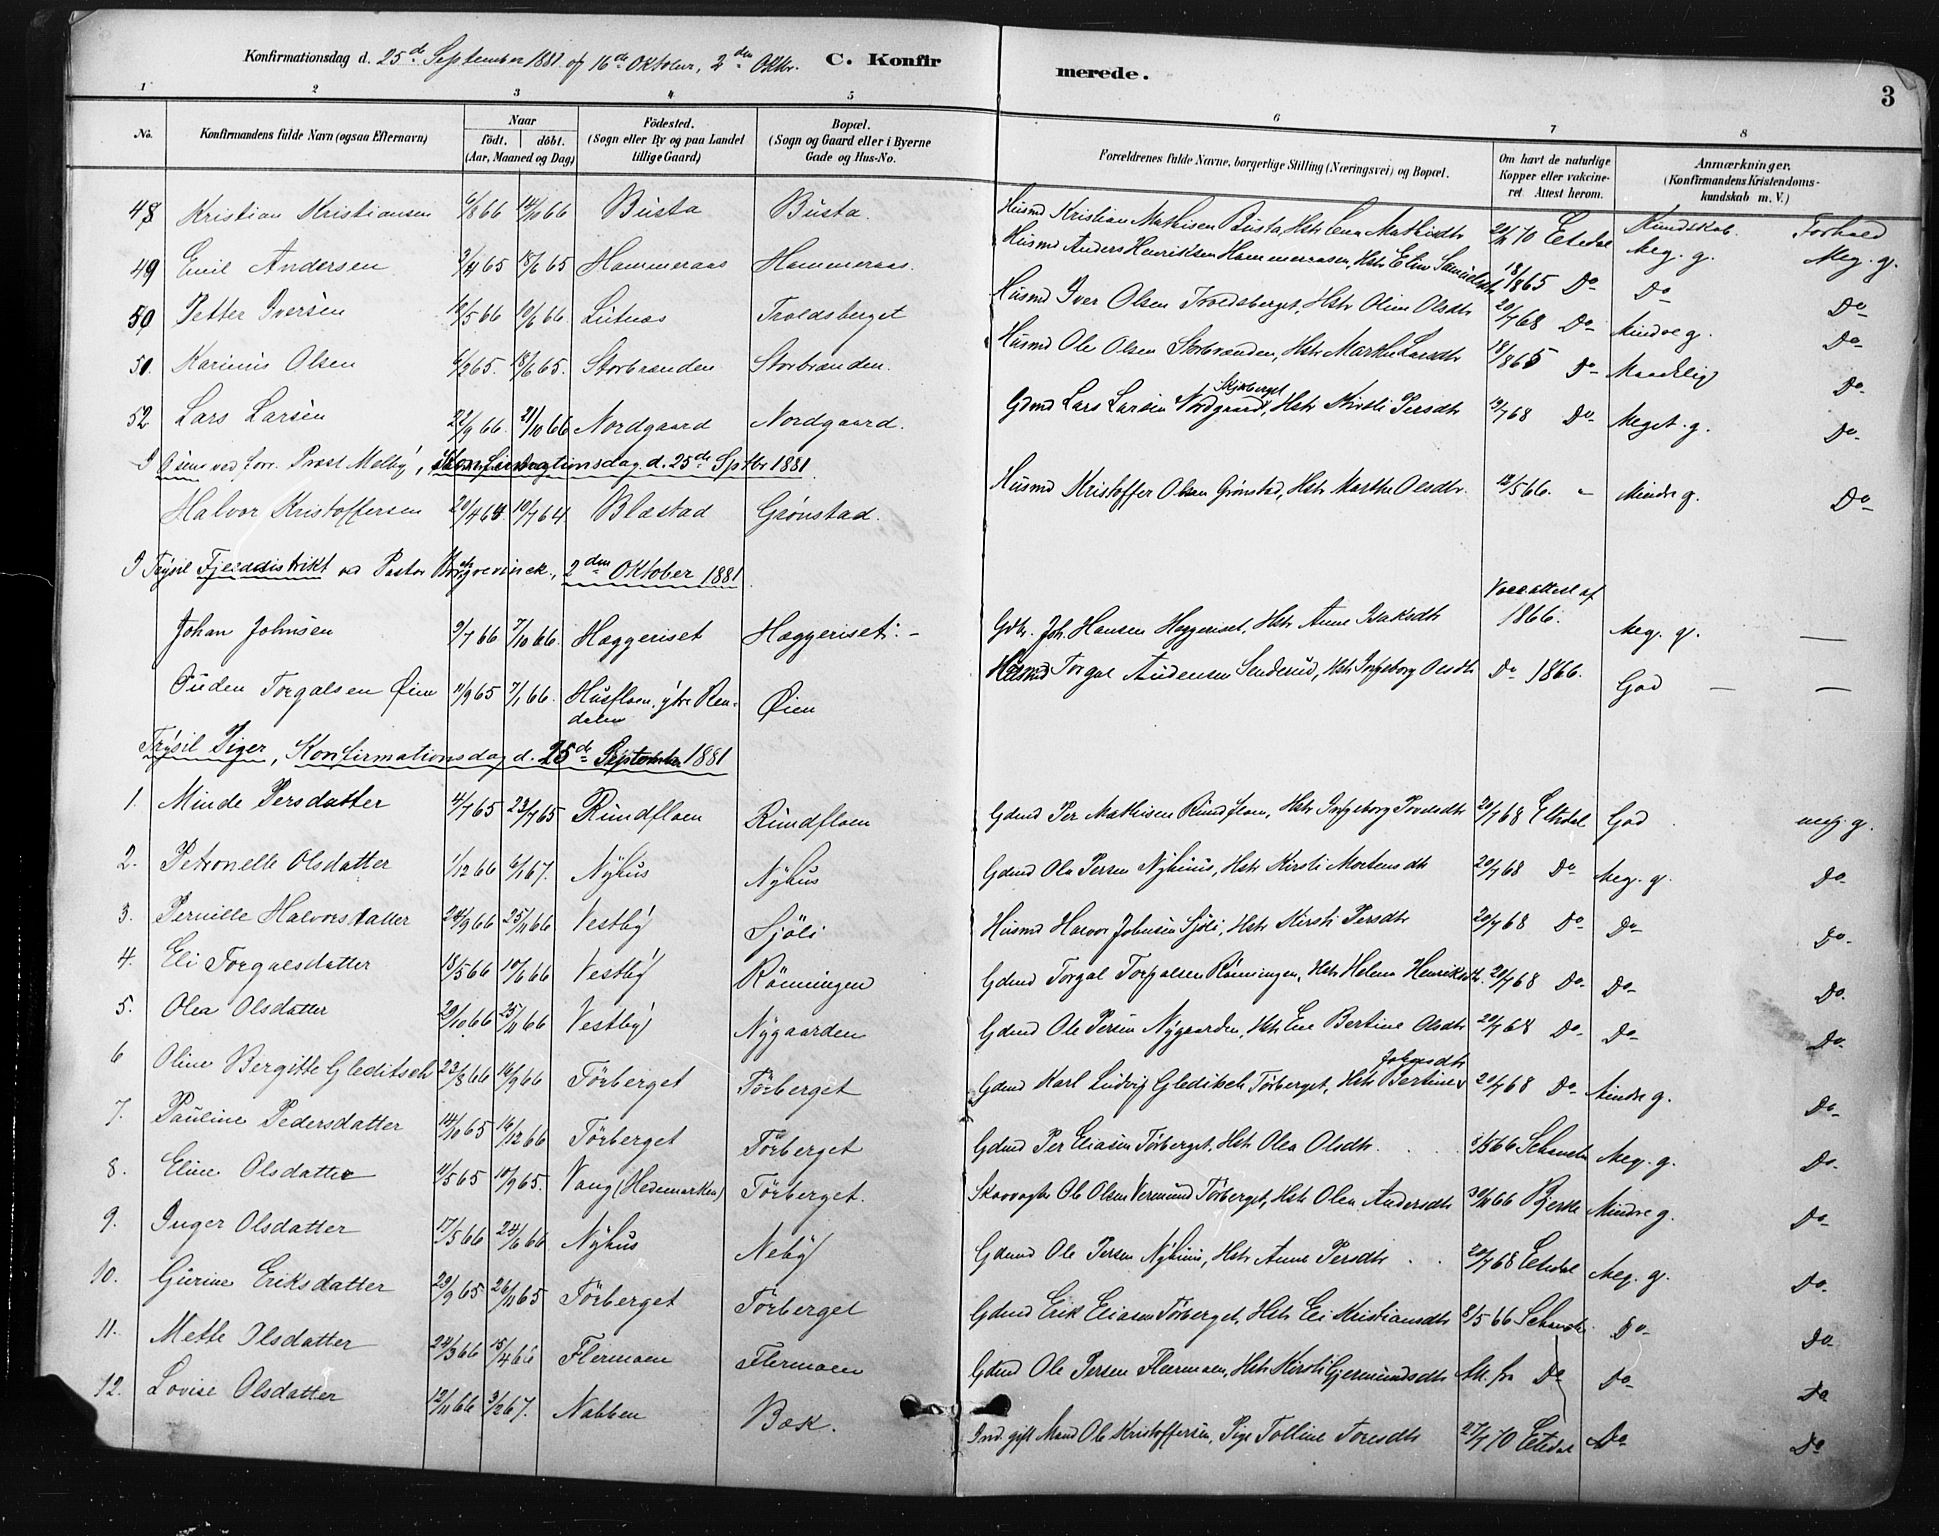 Konfirmationsdag d. 25de September 1881 og 16de Oktober, 2den Oktbr. C. Konfirmerede. 3
1 2 3 4 5 6 7 8
No. Konfirmandens fulde Navn (ogsaa Efternavn) Naar født. døbt. (Aar, Maaned og Dag) Fødested. (Sogn eller By og paa Landet tillige Gaard) Bopæl. (Sogn og Gaard eller i Byerne Gade og Hus-No. Forældrenes fulde Navne, borgerlige Stilling (Næringsvei) og Bopæl. Om havt de naturlige Kopper eller vakcineret. Attest herom. Anmærkninger. (Konfirmandens Kristendomskundskab m. V.)
Kundskab. Forhold
48 Kristian Kristiansen 6/8 66 14/10 66 Busta Busta. Husmd Kristian Mathisen Busta, Hstr Lena Mathisdtr 70 Elvdal Meg. g. Meg. g.
49 Emil Andersen 3/4 65 18/6 65 Hammeraas Hammeraas. Husmd Anders Henriksen Hammeraasen, Hstr Eline Samuelsdtr 18/8 65 Do Do Do
50 Petter Iversen 10/5 66 10/6 66 Lutnæs Troldsberget Husmd Iver Olsen Troldsberget, Hstr Oline Olsdtr 20/7 68 Do Mindre g. Do
51. Karinus Olsen 6/2 65. 18/6 65. Storbrænden Storbrænden. Husmd Ole Olsen Storbrænden, Hstr Marthe Larsdtr 18/8 65 Do Maadelig Do
52 Lars Larsen 22/9 66. 21/10 66 Nordgaard Nordgaard. Gdmd Lars Larsen Nordgaard, Skjærberget Hstr Kirsti Persdtr 19/7 68 Do Meget. g. Do
I Osen ved Prost Melby, Konfirmationsdag d. 25de Sptbr 1881.
Halvor Kristoffersen 20/4 64. 10/7 64 Blæstad Grønstad. Husmd Kristoffer Olsen Grønstad, Hstr Marthe Olsdtr. 12/5 66. Mindre g. Do
I Trysil Fjelddistrikt Pastor 2den Oktober 1881.
Johan Johnsen 9/7 66 7/10 66. Haggeriset Haggeriset. Gdbr. Joh. Hansen Haggeriset, Hstr Anne Isaksdtr Vaccattest af 1866. Meg. g. —
Ouden Torgalsen Øien 11/9 65 7/1 66. Husfloen, ytre Rendalen Øien Husmd Torgal Audensen Senderud, Hstr Ingeborg Olsdtr Do 1866. God — —
Trysil Piger, Konfirmationsdag d. 25de September 1881
1. Minde Persdatter 4/7 65 23/7 65 Rundfloen Rundfloen Gdmd Per Mathisen Rundfloen, Hstr Ingeborg 20/7 68 Elvdal God meg. g.
2. Petronelle Olsdatter 1/12 66 6/1 67. Nyhus Nyhus Gdmd Ole Persen Nyhuus, Hstr Kirsti Mortensdtr 20/7 68 Do Meg. g. Do
3. Pernille Halvorsdatter 24/9 66 25/11 66 Vestby Sjöli Husmd Halvor Johnsen Sjöli, Hstr Kirsti Persdtr 20/7 68 Do Do Do
4. Eli Torgalsdatter 18/5 66 10/6 66 Vestby Rønningen Gdmd Torgal Torgalsen Rønningen, Hstr Helene Henriksdtr. 20/7 68 Do Do Do
5. Olea Olsdatter 29/10 66 25/11 66 Vestby Nygaarden Gdmd Ole Persen Nygaarden, Hstr Ene Bertine Olsdtr 20/7 68 Do Do Do
6 Oline Bergitte Gleditsch 23/8 66 16/9 66 Törberget Törberget Gdmd Karl Ludvig Gleditsch, Törberget, Hstr Bertine Johnsdtr 20/7 68 Do Mindre g. Do
7. Pauline Pedersdatter 14/10 65 16/12 66 Törberget Törberget Gdmd Per Eliasen Törberget, Hstr Olea Olsdtr. 8/5 66 Schanche Meg. g. Do
8. Eline Olsdatter 11/5 65 10/9 65. Vang (Hedemarken) Törberget. Skovvogter Ole Olsen Vermund Törberget, Hstr Olea Andersdtr 30/11 66 Bjerke Mindre g. Do
9. Inger Olsdatter 17/5 66 24/6 66 Nyhus Neby Gdmd Ole Persen Nyhuus, Hstr Anne Persdtr 20/7 68 Elvdal Meg. g. Do
10. Gurine Eriksdatter 29/9 65 26/11 65 Törberget Törberget Gdmd Erik Eliasen Törberget, Hstr Eli Kristiansdtr 8/5 66 Schanche Do Do
11. Mette Olsdatter 24/3 66 15/4 66 Flermoen Flermoen Gdmd Ole Persen Flermoen, Hstr Kirsti Gjermundsdtr Att. fra Do Do Do
12. Lovise Olsdatter 12/11 66 3/2 67. Nabben Bæk. Ind. gift Mand Ole Kristoffersen, Pige Tolline Toresdtr 27/7 70 Elvdal Do Do